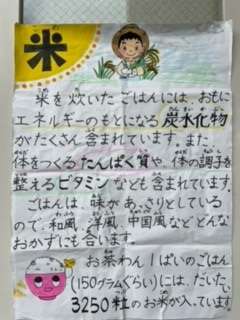 米
米を炊いたごはんには、おもに
エネルギーのもとになる炭水化物
がたくさん含まれています。また、
体をつくるたんぱく質や、体の調子を
整えるビタミンなども含まれています。
ごはんは、味があっさりとしている
ので、和風、洋風、中国風などどんな
おかずにも合います。
お茶わん1ぱいのごはん
(150グラムぐらい)には、だいたい
3250粒のお米が入っています。